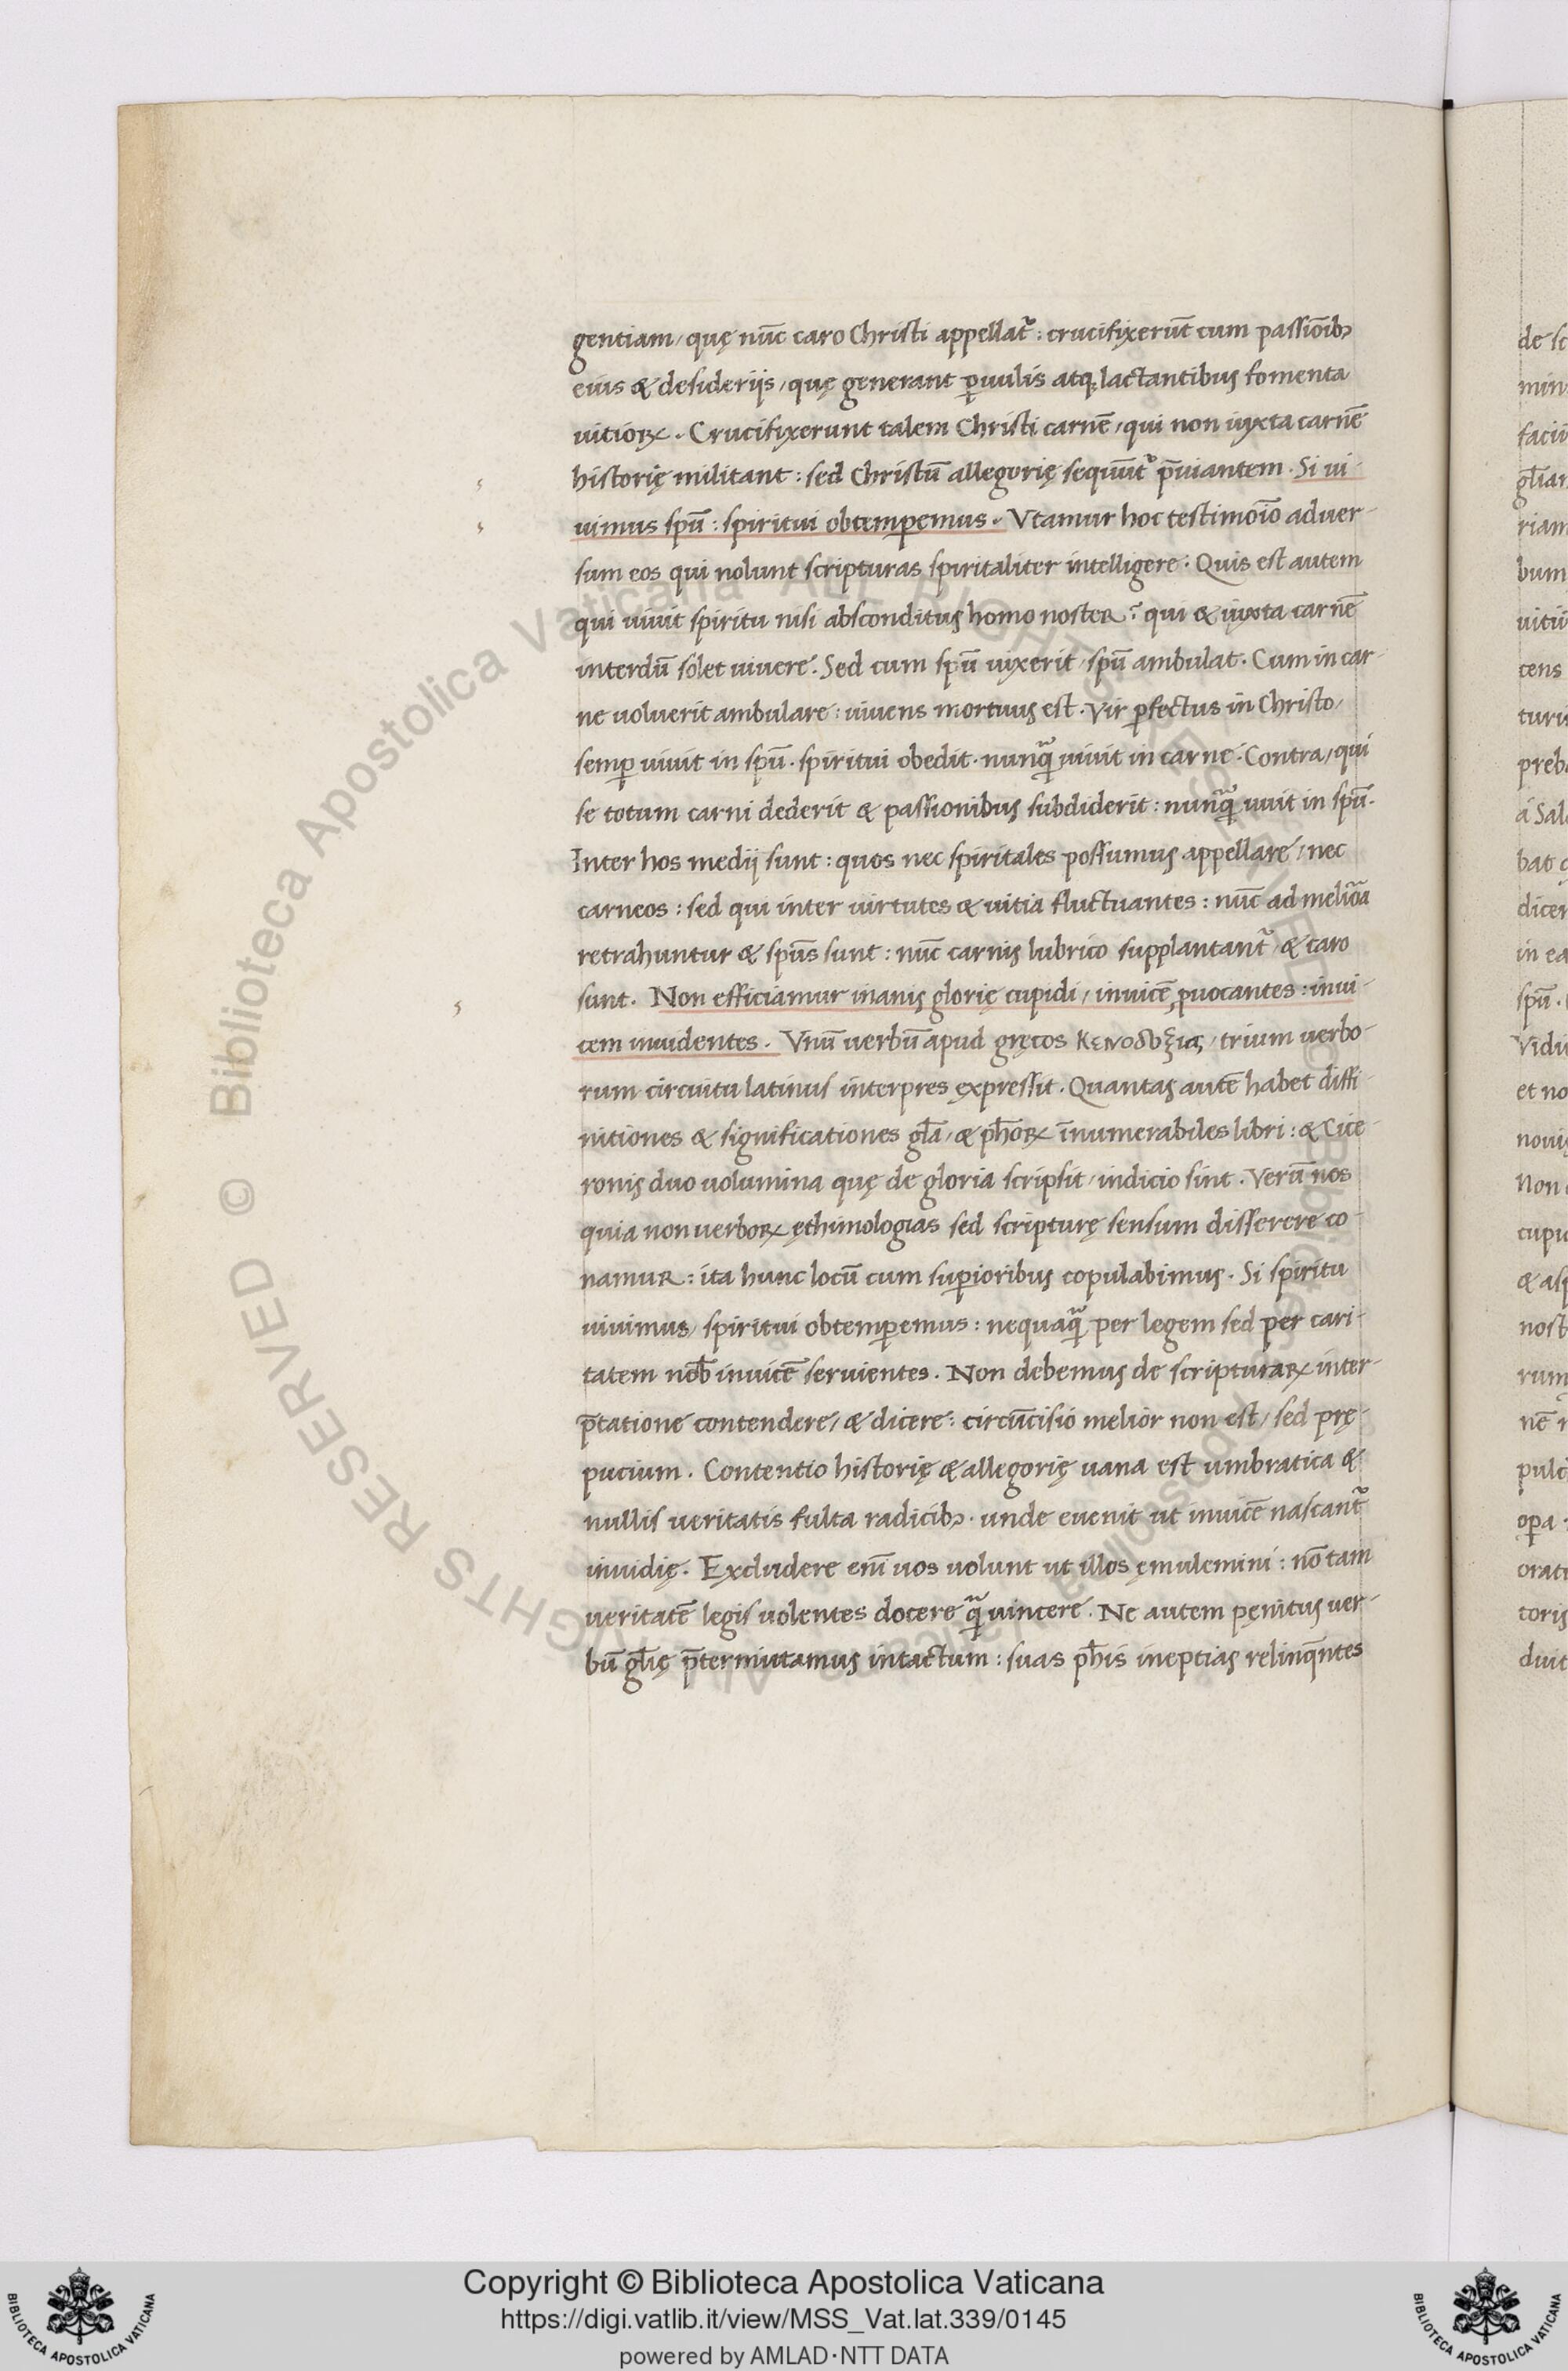 gentiam, quę nūc caro Christi appellat᷑: crucifixerūt cum passiōibꝫ
eius & desiderijs, quę generant ꝑuulis atqꝫ lactantibus fomenta
uitioꝝ. Crucifixerunt talem Christi carnē, qui non iuxta carnē
historię militant: sed Christū allegorię sequūt᷑ p̄uiantem. Si ui-
uimus spū: spiritui obtemꝑemus. Vtamur hoc testimoīo aduer-
sum eos qui nolunt scripturas spiritaliter intelligere: Quis est autem
qui uiuit spiritu nisi absconditus homo noster? qui & iuxta carnē
interdū solet uiuere. Sed cum spū uixerit, spū ambulat. Cum in car-
ne uoluerit ambulare: uiuens mortuus est. Vir ꝑfectus in Christo,
semꝑ uiuit in spū. spiritui obedit. nunq̃ uiuit in carne. Contra, qui
se totum carni dederit & passionibus subdiderit: nunq̃ uiuit in spū.
Inter hos medij sunt: quos nec spiritales possumus appellare, nec
carneos: sed qui inter uirtutes & uitia fluctuantes: nūc ad melioᷓa
retrahuntur & spūs sunt: nūc carnis lubrico supplantant᷑, & caro
sunt. Non efficiamur inanis glorię cupidi, inuicē ꝓuocantes: inui-
cem inuidentes. Vnū uerbū apud gręcos κενοδοξίας, trium uerbo-
rum circuitu latinus interpres expressit. Quantas autē habet diffi-
nitiones & significationes gl̄a, & ph̄oꝝ īnumerabiles libri: & Cice-
ronis duo uolumina quę de gloria scripsit, indicio sint. Verū nos
quia non uerboꝝ ęthimologias sed scripturę sensum disserere co-
namur: ita hunc locū cum suꝑioribus copulabimus. Si spiritu
uiuimus, spiritui obtemꝑemus: nequaq̃ per legem sed per cari-
tatem nob̄ inuicē seruientes. Non debemus de scripturaꝝ inter-
p̄tatione contendere, & dicere: circūcisio melior non est, sed prę-
pucium. Contentio historię & allegorię uana est umbratica &
nullis ueritatis fulta radicibꝫ. unde euenit ut inuicē nascant᷑
inuidię. Excludere enī uos uolunt ut illos ęmulemini: nō tam
ueritatē legis uolentes docere q̃ uincere. Ne autem penitus uer-
bū gl̄ię p̄termittamus intactum: suas ph̄is ineptias relinq̄ntes
Copyright © Biblioteca Apostolica Vaticana
https://digi.vatlib.it/view/MSS_Vat.lat.339/0145
powered by AMLAD·NTT DATA